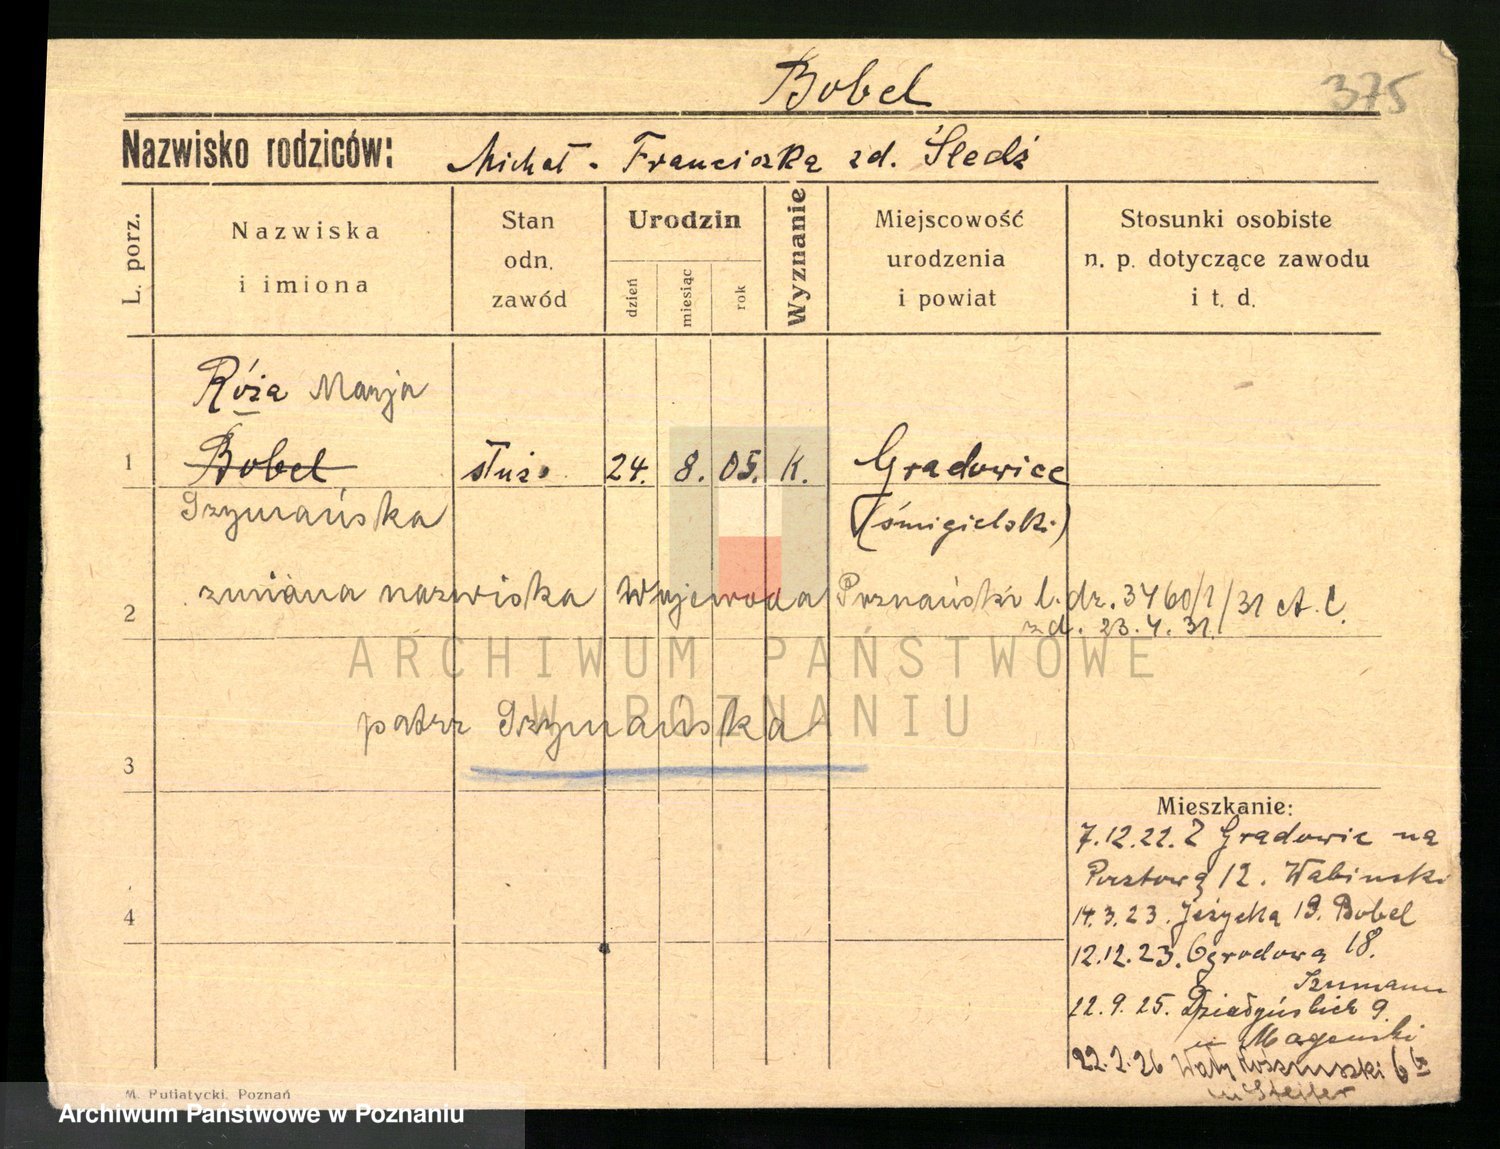 Bobel
375
Nazwisko rodziców: Michał - Franciszka zd. Śledź
L. porz.
Nazwiska i imiona
Stan odn. zawód
Urodzin
dzień
miesiąc
rok
Wyznanie
Miejscowość urodzenia i powiat
Stosunki osobiste n. p. dotyczące zawodu i t. d.
Róża Marja
1 Bobel służ. 24. 8. 05. K. Gradowice
Grzymańska (śmigielski)
2 zmiana nazwiska Wojewoda Poznański l. dz. 3460/1/31 A. C.
z d. 23. 4. 31.
ARCHIWUM PAŃSTWOWE
W POZNANIU
patrz Grzymańska
3
Mieszkanie:
7.12.22. Z Gradowic na
Pocztową 12. Wabinski
4 14.3.23. Jeżycka 19. Bobel
12.12.23. Ogrodowa 18.
22.9.25. Działyńskich 9.
u Magenski
22.2.26 Wały Kościuszki 6
M. Putiatycki, Poznań
Archiwum Państwowe w Poznaniu